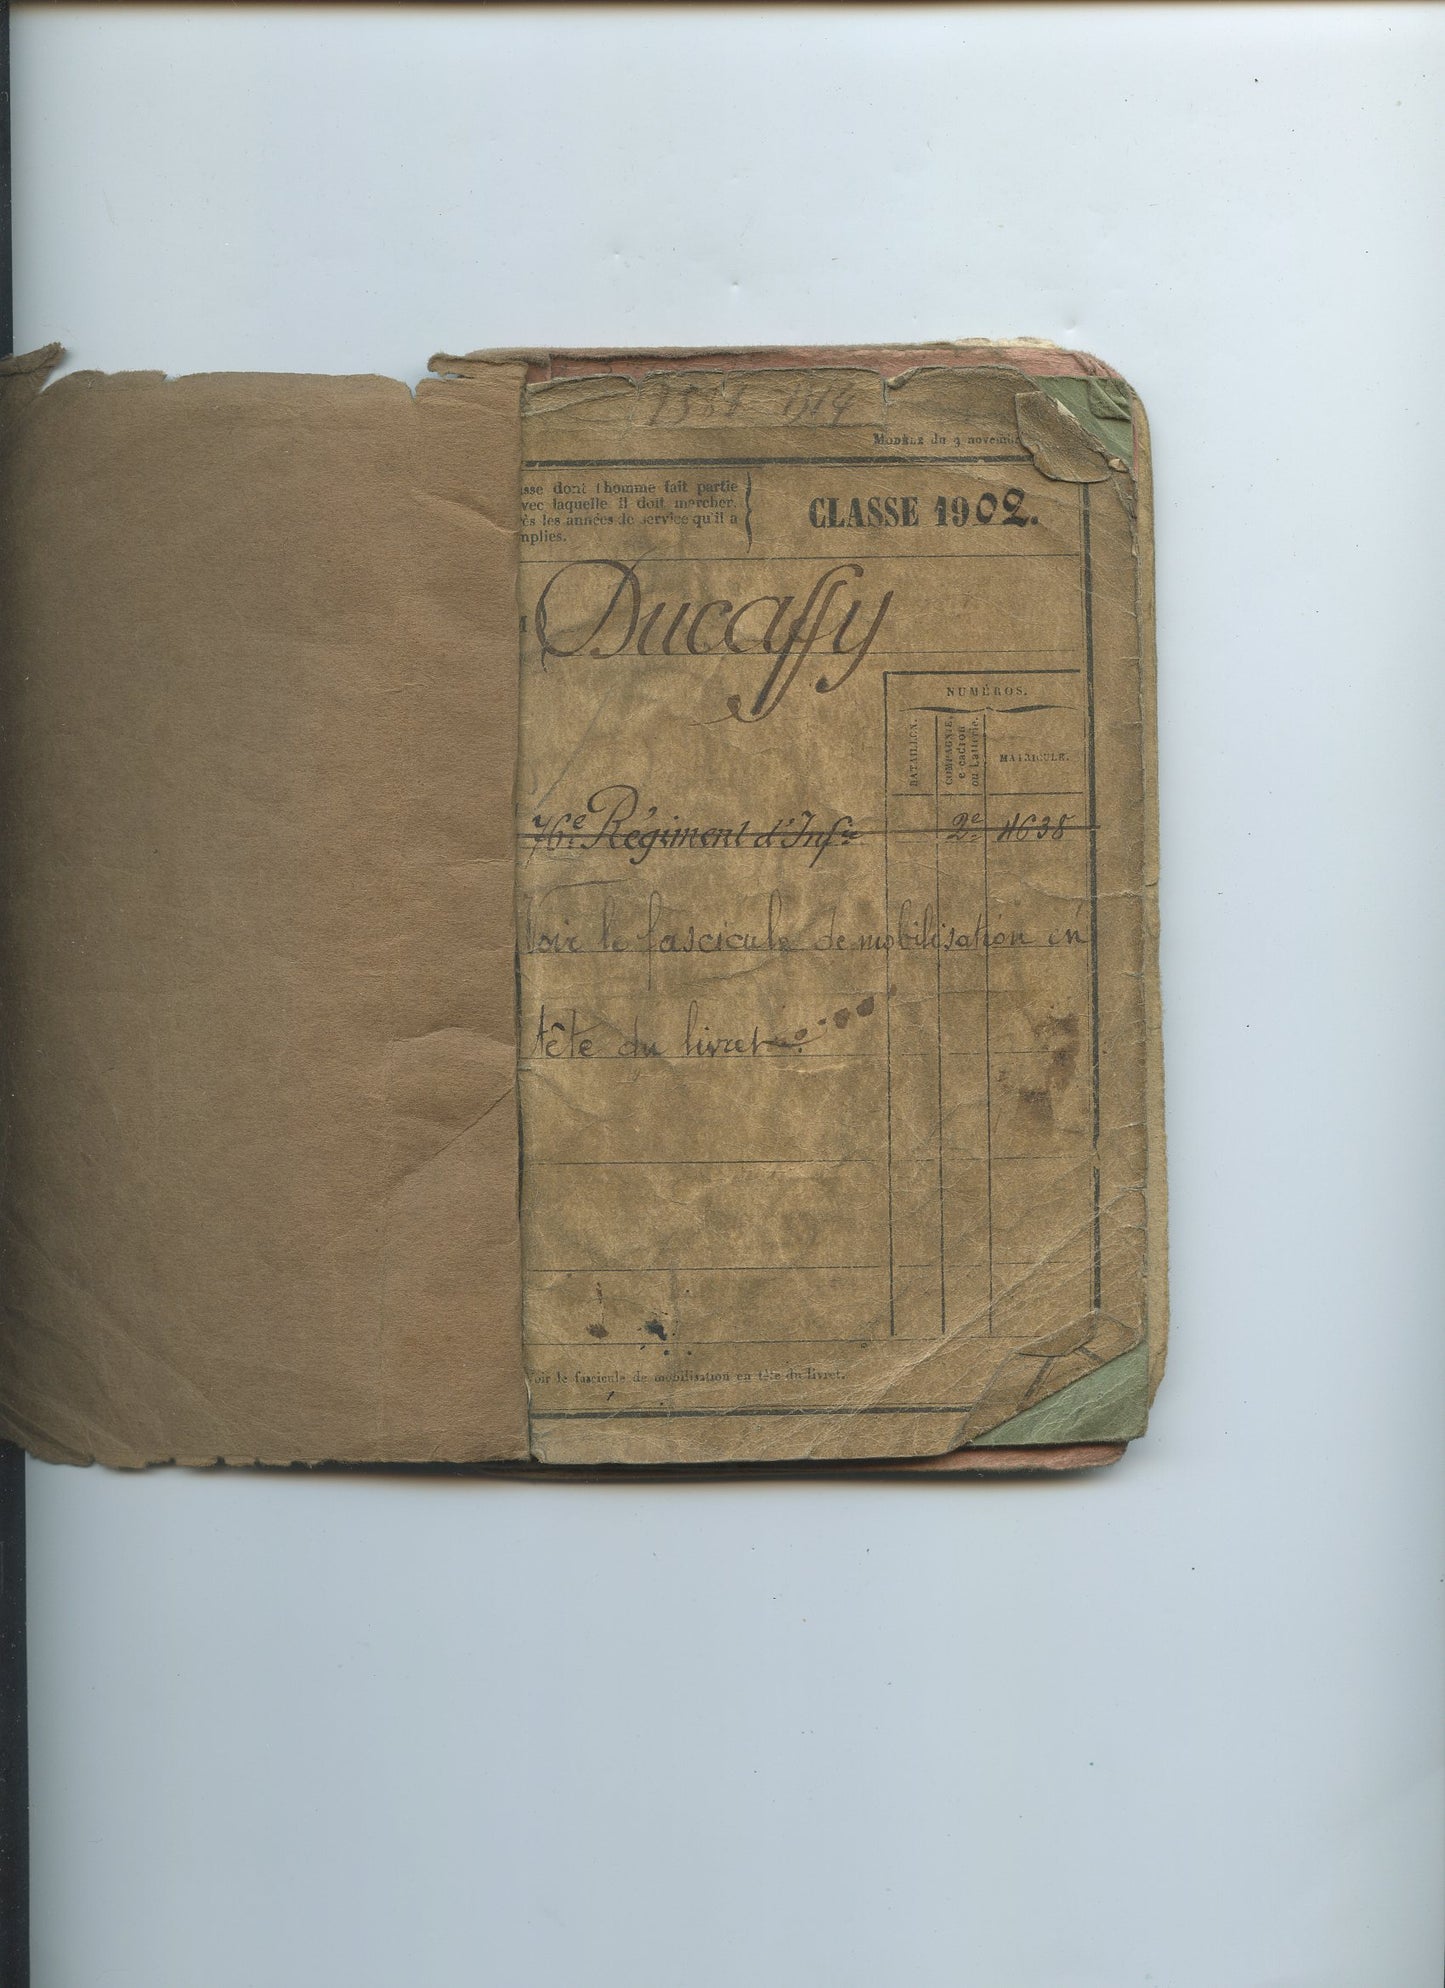 1914
MODÈLE du 3 novem
sse dont l'homme fait partie
vec laquelle il doit marcher,
ès les années de service qu'il a
mplies.
CLASSE 1902.
Ducaffy
NUMÉROS.
BATAILLON.
COMPAGNIE,
escadron
ou batterie.
MATRICULE.
76e Régiment d'Infie 2e 4638
Voir le fascicule de mobilisation en
tête du livret
Voir le fascicule de mobilisation en tête du livret.